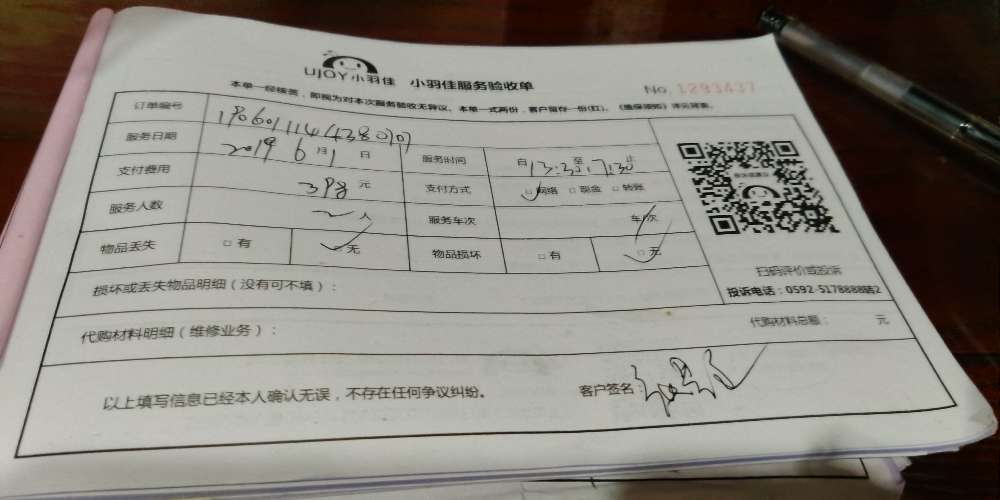 UJOY小羽佳 小羽佳服务验收单
No. 1293437
本单一经核签，即视为对本次服务验收无异议。本单一式两份，客户留存一份(红)。
订单编号
服务日期 2019年6月1日 服务时间 自13:30至17:30止
支付费用 398元 支付方式 □网络 □现金 □转账
服务人数 二人 服务车次 车/次
物品丢失 □有 □无 物品损坏 □有 □无
损坏或丢失物品明细（没有可不填）：
扫码评价或投诉
投诉电话：0592-5178888转2
代购材料明细（维修业务）： 代购材料总额： 元
以上填写信息已经本人确认无误，不存在任何争议纠纷。 客户签名：